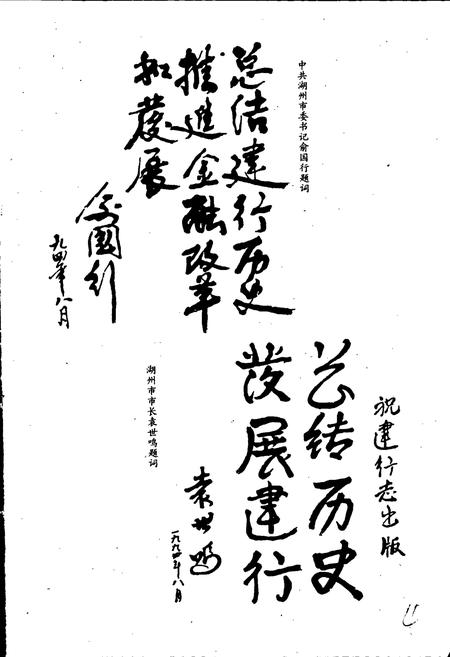 中共湖州市委书记俞国行题词
总结建行历史
推進金融改革
和發展
俞國行
九四年八月
湖州市市长袁世鸣题词
祝建行志出版
总结历史
发展建行
袁世鸣
一九九四年八月